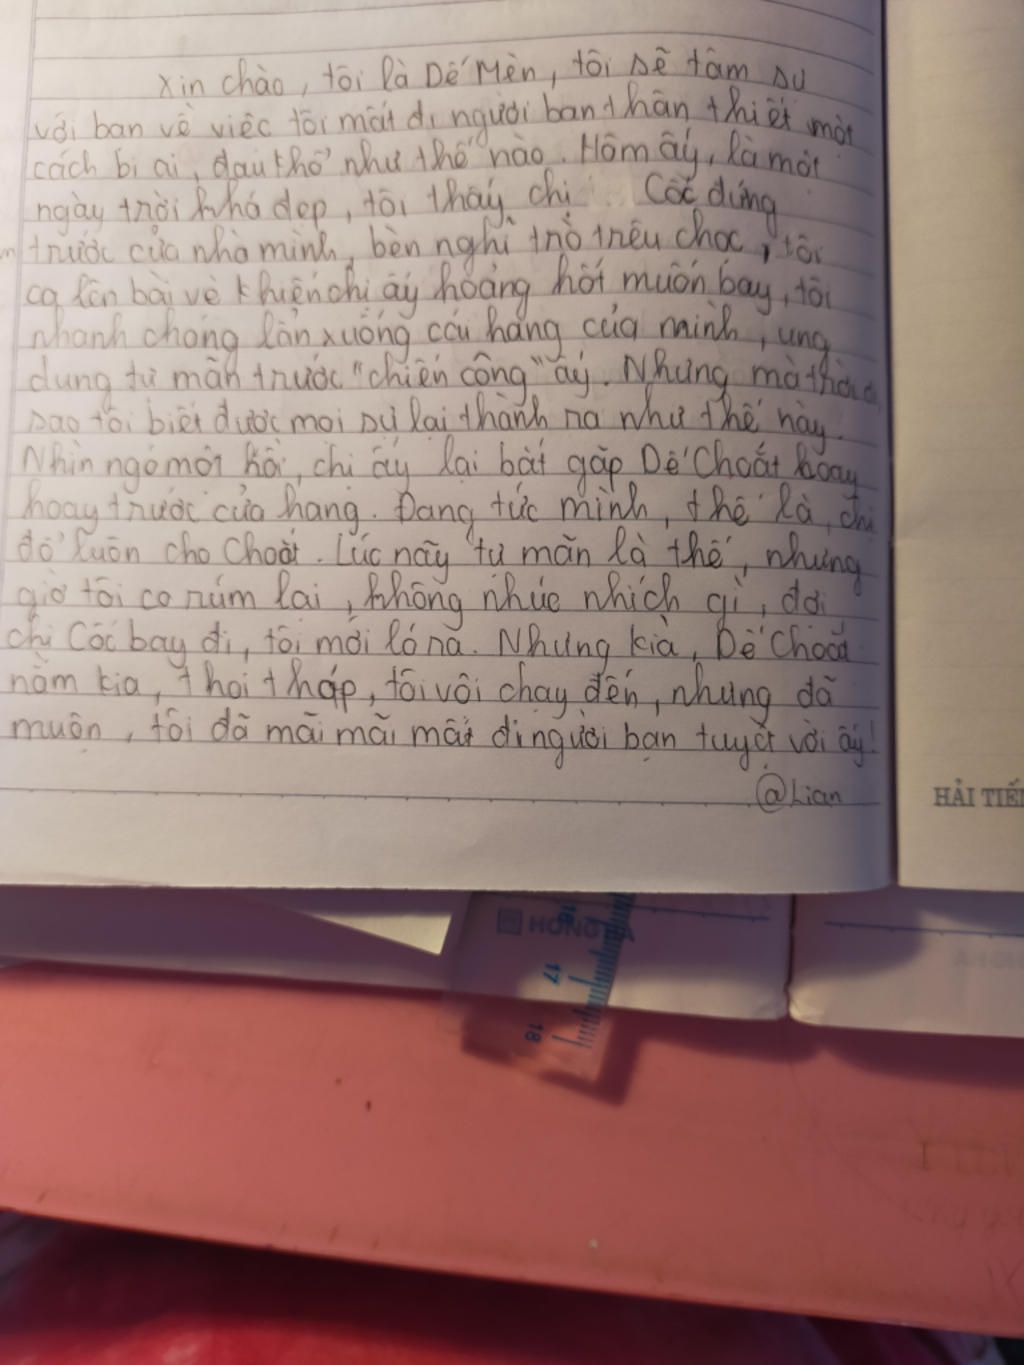 Xin chào, tôi là Dế Mèn, tôi sẽ tâm sự
với bạn về việc tôi mất đi người bạn thân thiết một
cách bi ai, đau khổ như thế nào. Hôm ấy, là một
ngày trời khá đẹp, tôi thấy chị Cốc đứng
trước cửa nhà mình, bèn nghĩ trò trêu chọc, tôi
ca lên bài vè khiến chị ấy hoảng hốt muốn bay, tôi
nhanh chóng lẩn xuống cái hang của mình, ung
dung tự mãn trước "chiến công" ấy. Nhưng mà
sao tôi biết được mọi sự lại thành ra như thế này.
Nhìn ngó một hồi, chị ấy lại bắt gặp Dế Choắt hoay
hoay trước cửa hang. Đang tức mình, thế là, chị
đổ luôn cho Choắt. Lúc nãy tự mãn là thế, nhưng
giờ tôi co rúm lại, không nhúc nhích gì, đợi
chị Cốc bay đi, tôi mới ló ra. Nhưng kìa, Dế Choắt
nằm kia, thoi thóp, tôi vội chạy đến, nhưng đã
muộn, tôi đã mãi mãi mất đi người bạn tuyệt vời ấy!
@Lian
HẢI TIẾN
HONG HA
16
17
18